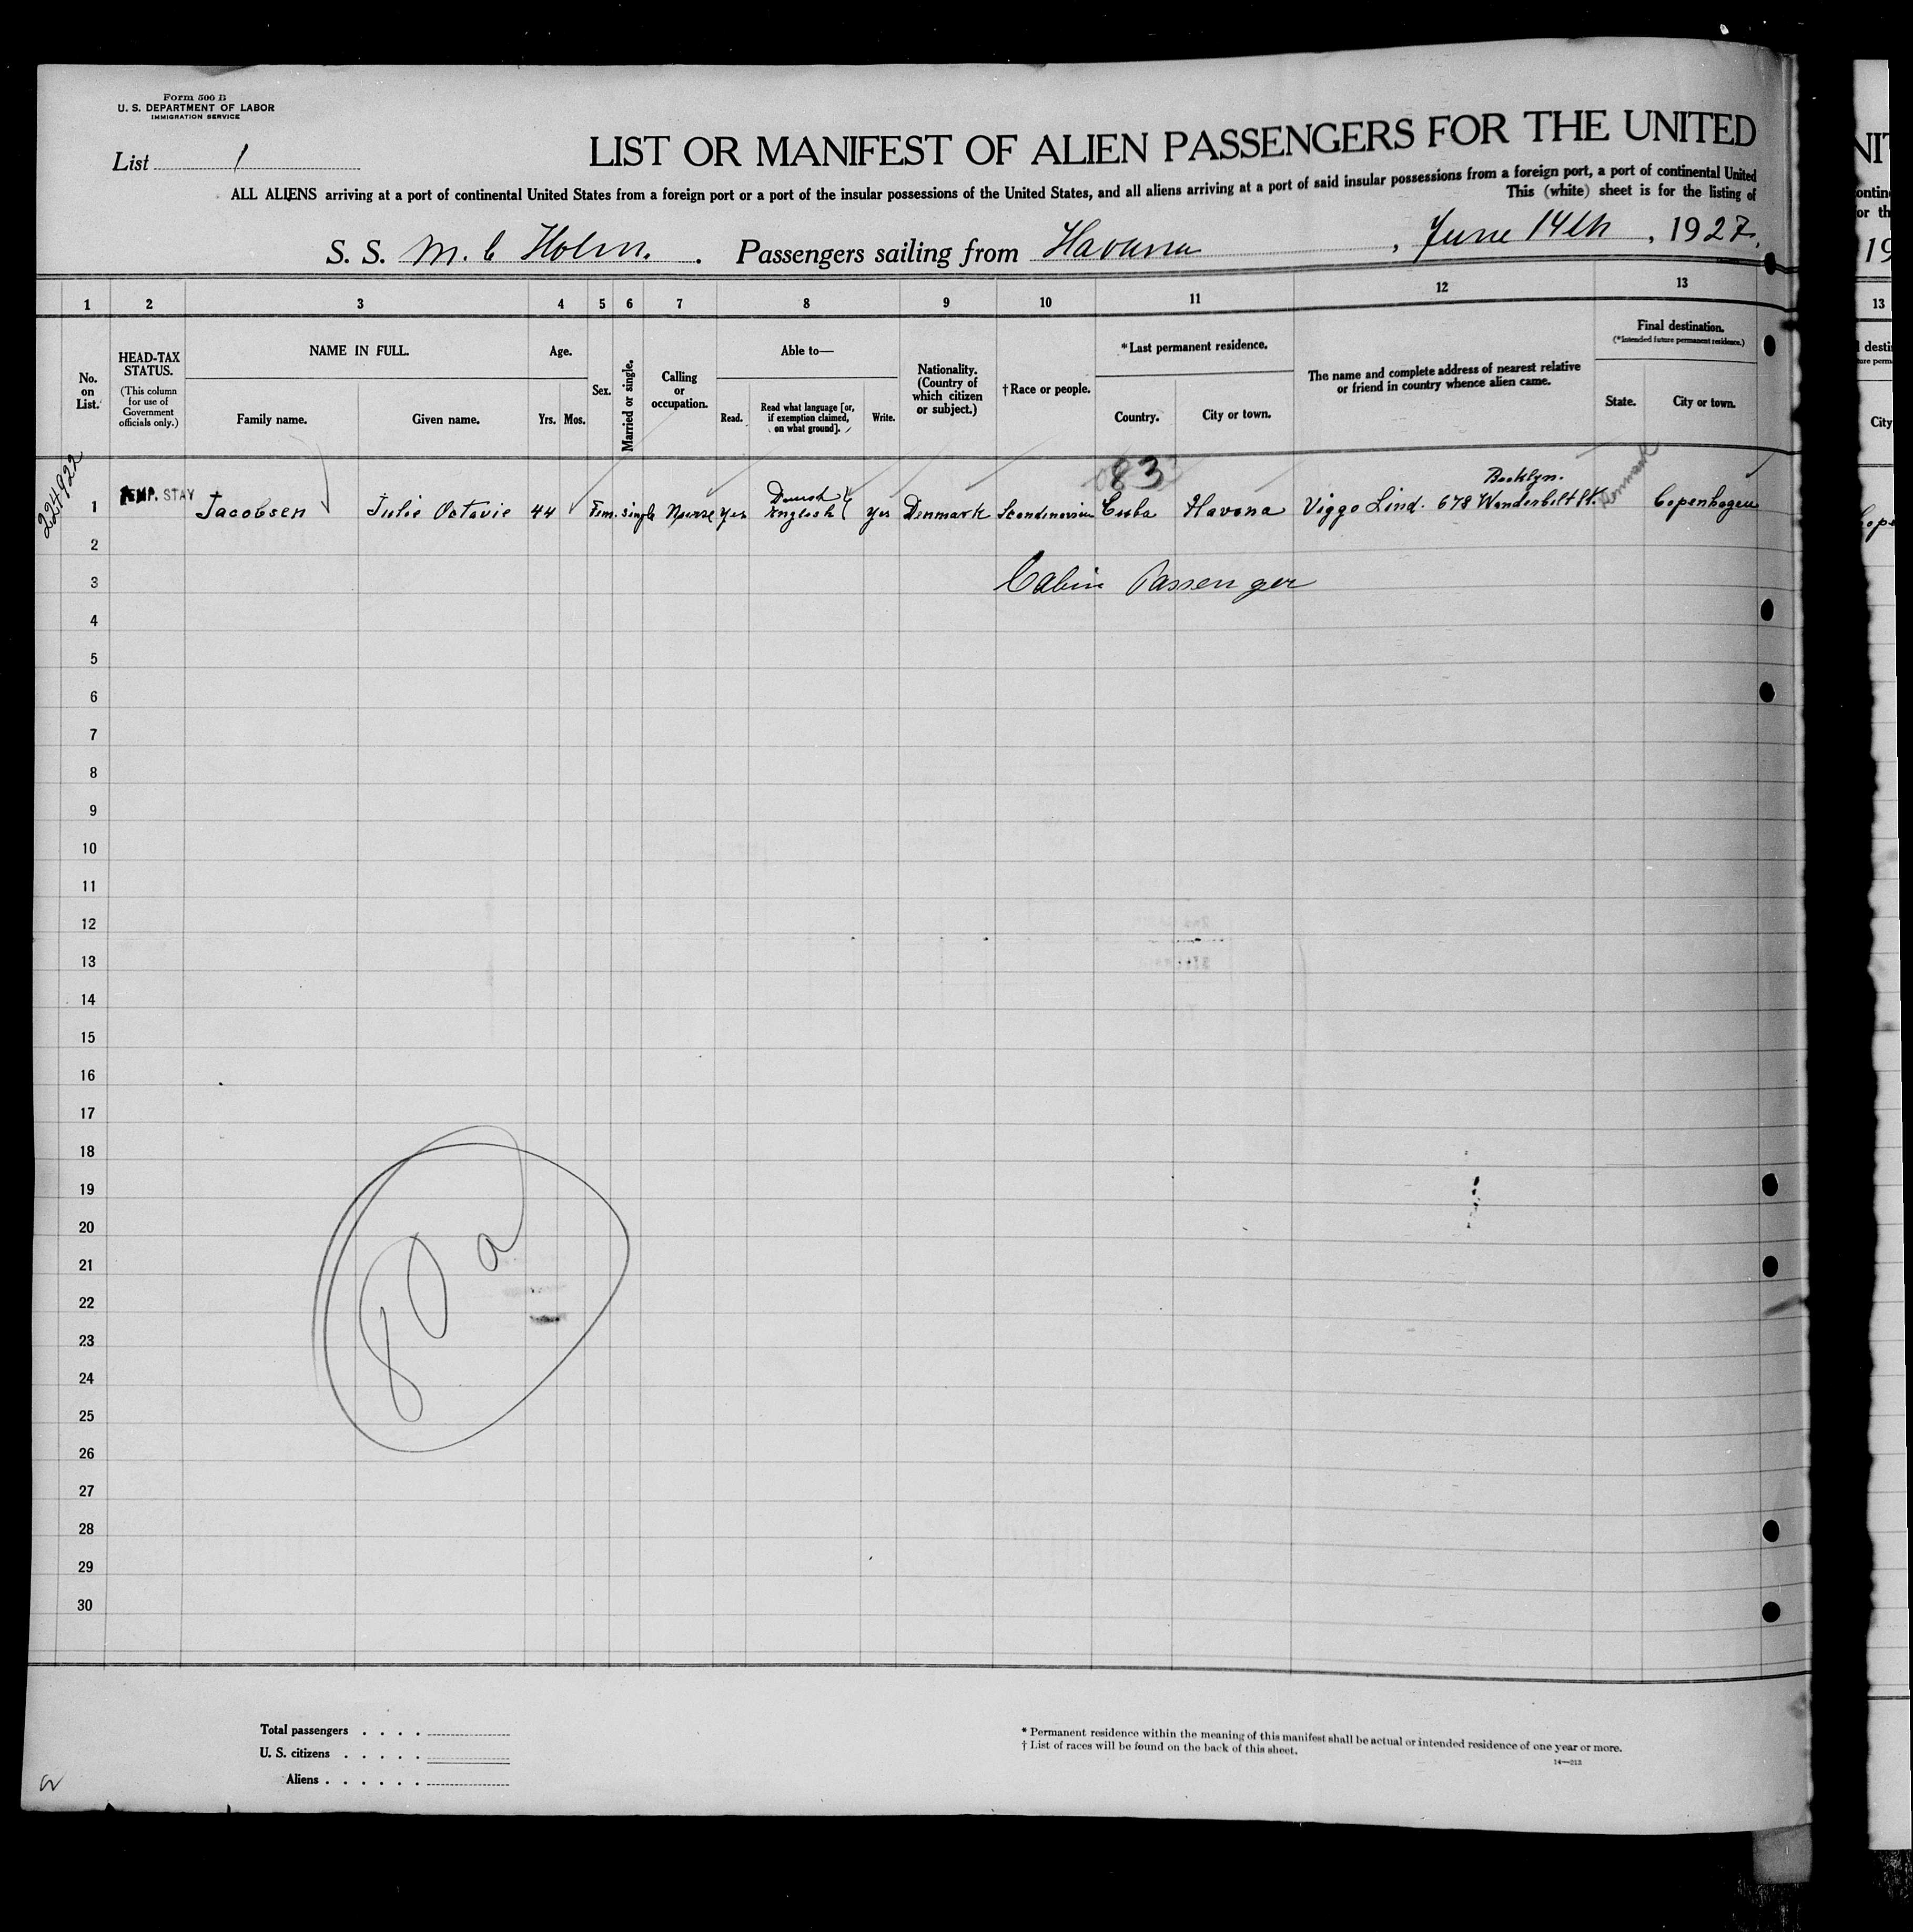 Form 500 B
U. S. DEPARTMENT OF LABOR
IMMIGRATION SERVICE
List 1
LIST OR MANIFEST OF ALIEN PASSENGERS FOR THE UNITED
ALL ALIENS arriving at a port of continental United States from a foreign port or a port of the insular possessions of the United States, and all aliens arriving at a port of said insular possessions from a foreign port, a port of continental United
This (white) sheet is for the listing of
S. S. M. C Holm. Passengers sailing from Havana, June 14th, 1927.
1 2 3 4 5 6 7 8 9 10 11 12 13
No. on List.
HEAD-TAX STATUS.
(This column for use of Government officials only.)
NAME IN FULL.
Family name. Given name.
Age.
Yrs. Mos.
Sex.
Married or single.
Calling or occupation.
Able to—
Read. Read what language [or, if exemption claimed, on what ground]. Write.
Nationality. (Country of which citizen or subject.)
†Race or people.
*Last permanent residence.
Country. City or town.
The name and complete address of nearest relative or friend in country whence alien came.
Final destination.
(*Intended future permanent residence.)
State. City or town.
224922
083
Booklyn.
1 TEMP. STAY Jacobsen Julie Octavie 44 Fem. single Nurse yes Danish English yes Denmark Scandinavian Cuba Havana Viggo Lind. 678 Wanderbilt St. Denmark Copenhagen
2
3 Cabin Passenger
4
5
6
7
8
9
10
11
12
13
14
15
16
17
18
19
20
21
22
23
24
25
26
27
28
29
30
80a
Total passengers . . . .
U. S. citizens . . . . .
Aliens . . . . . .
* Permanent residence within the meaning of this manifest shall be actual or intended residence of one year or more.
† List of races will be found on the back of this sheet.
14—213